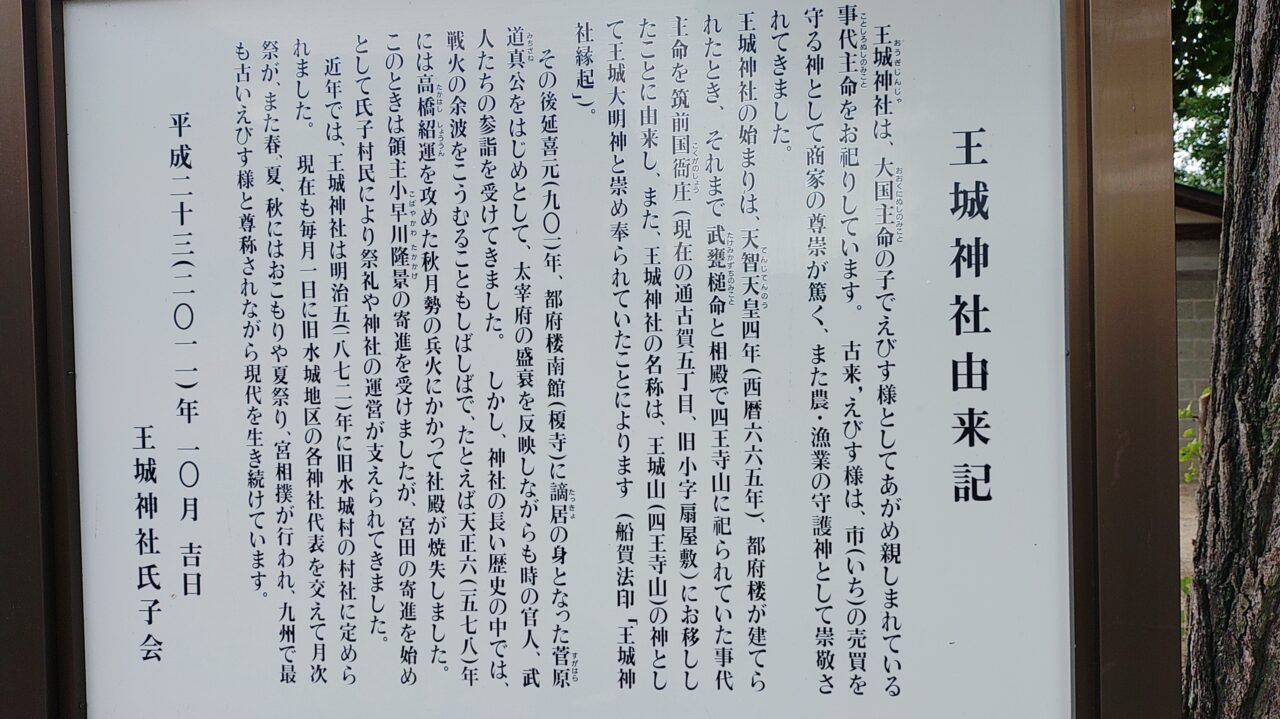 王城神社由来記
王城神社は、大国主命の子でえびす様としてあがめ親しまれている
事代主命をお祀りしています。 古来,えびす様は、市(いち)の売買を
守る神として商家の尊崇が篤く、また農・漁業の守護神として崇敬さ
れてきました。
王城神社の始まりは、天智天皇四年(西暦六六五年)、都府楼が建てら
れたとき、それまで武甕槌命と相殿で四王寺山に祀られていた事代
主命を筑前国衙庄(現在の通古賀五丁目、旧小字扇屋敷)にお移しし
たことに由来し、また、王城神社の名称は、王城山(四王寺山)の神とし
て王城大明神と崇め奉られていたことによります(船賀法印「王城神
社縁起」)。
その後延喜元(九〇一)年、都府楼南館(榎寺)に謫居の身となった菅原
道真公をはじめとして、太宰府の盛衰を反映しながらも時の官人、武
人たちの参詣を受けてきました。 しかし、神社の長い歴史の中では、
戦火の余波をこうむることもしばしばで、たとえば天正六(一五七八)年
には高橋紹運を攻めた秋月勢の兵火にかかって社殿が焼失しました。
このときは領主小早川隆景の寄進を受けましたが、宮田の寄進を始め
として氏子村民により祭礼や神社の運営が支えられてきました。
近年では、王城神社は明治五(一八七二)年に旧水城村の村社に定めら
れました。 現在も毎月一日に旧水城地区の各神社代表を交えて月次
祭が、また春、夏、秋にはおこもりや夏祭り、宮相撲が行われ、九州で最
も古いえびす様と尊称されながら現代を生き続けています。
平成二十三(二〇一一)年 一〇月 吉日
王城神社氏子会